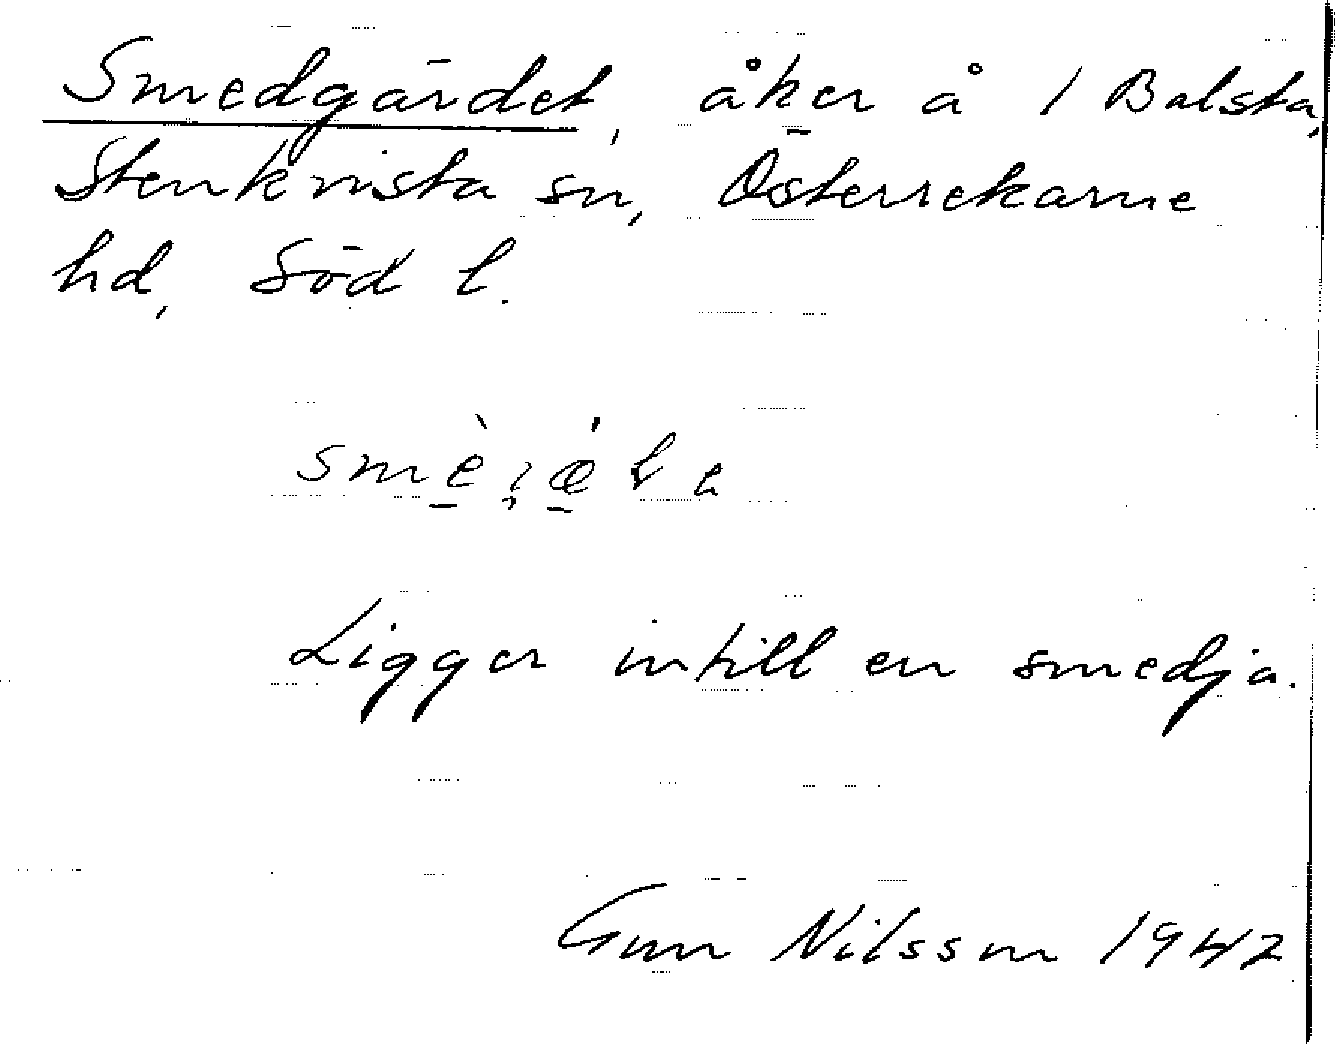 Smedgärdet, åker å 1 Balsta,
Stenkvista sn, Österrekarne
hd, Söd l.
Ligger intill en smedja.
Gun Nilsson 1942